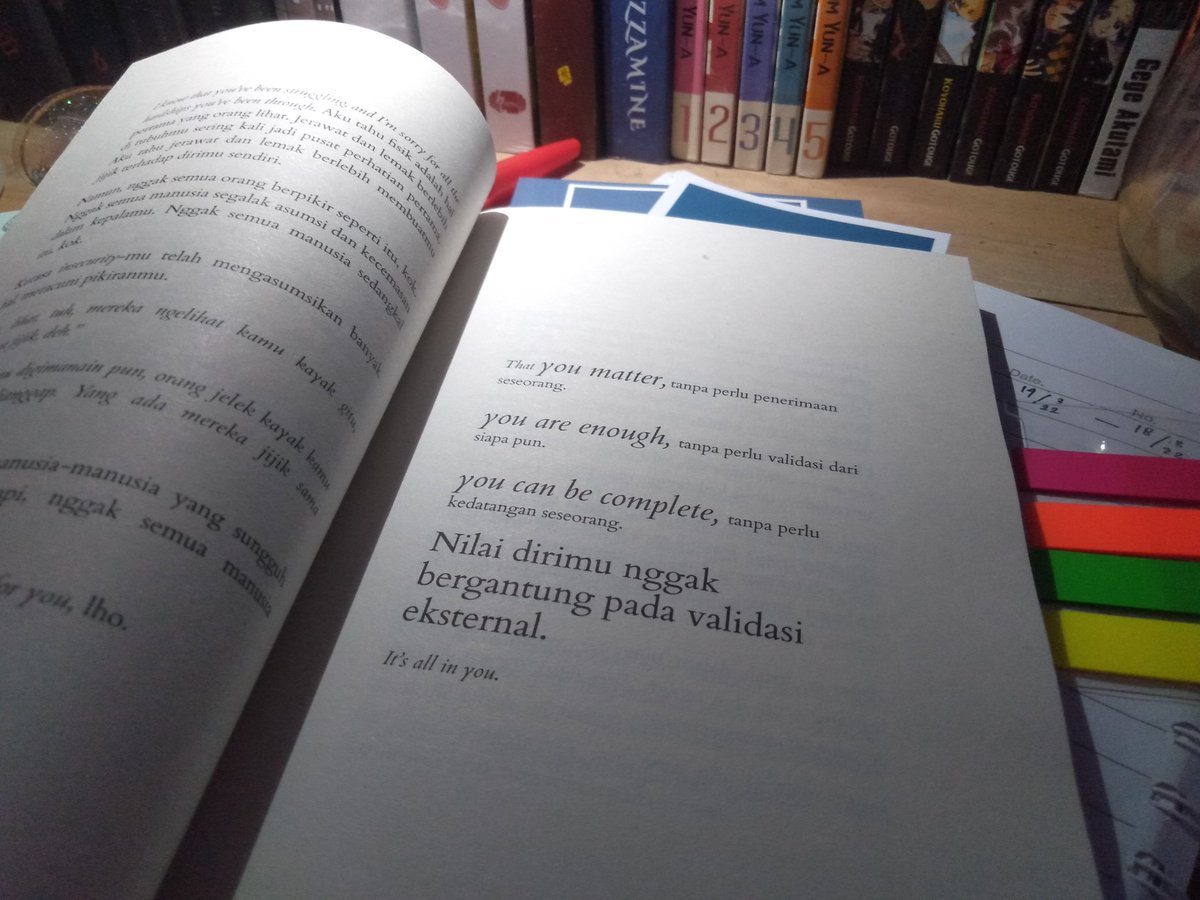 I know that you've been struggling, and I'm sorry for all the
hardships you've been through. Aku tahu fisik adalah hal
pertama yang orang lihat. Jerawat dan lemak berlebih
di tubuhmu sering kali jadi pusat perhatian pertama.
Aku tahu jerawat dan lemak berlebih membuatmu
jijik terhadap dirimu sendiri.
Namun, nggak semua orang berpikir seperti itu, kok.
Nggak semua manusia segalak asumsi dan kecemasan
dalam kepalamu. Nggak semua manusia sedangkal
itu, kok.
Kurasa insecurity-mu telah mengasumsikan banyak
mencuni pikiranmu.
lihat, tuh, mereka ngelihat kamu kayak gitu,
jijik, deh."
digimanain pun, orang jelek kayak kamu
Yang ada mereka jijik sama
manusia-manusia yang sungguh
nggak semua manusia
for you, lho.
That you matter, tanpa perlu penerimaan
seseorang.
you are enough, tanpa perlu validasi dari
siapa pun.
you can be complete, tanpa perlu
kedatangan seseorang.
Nilai dirimu nggak
bergantung pada validasi
eksternal.
It's all in you.
ZZAMINE
M YUN-A
1
YUN-A
2
M YUN-A
3
M YUN-A
4
M YUN-A
5
GOTOUGE
KOYOHARU GOTOUGE
GOTOUGE
GOTOUGE
GOTOUGE
Gege Akutami
Date.
No.